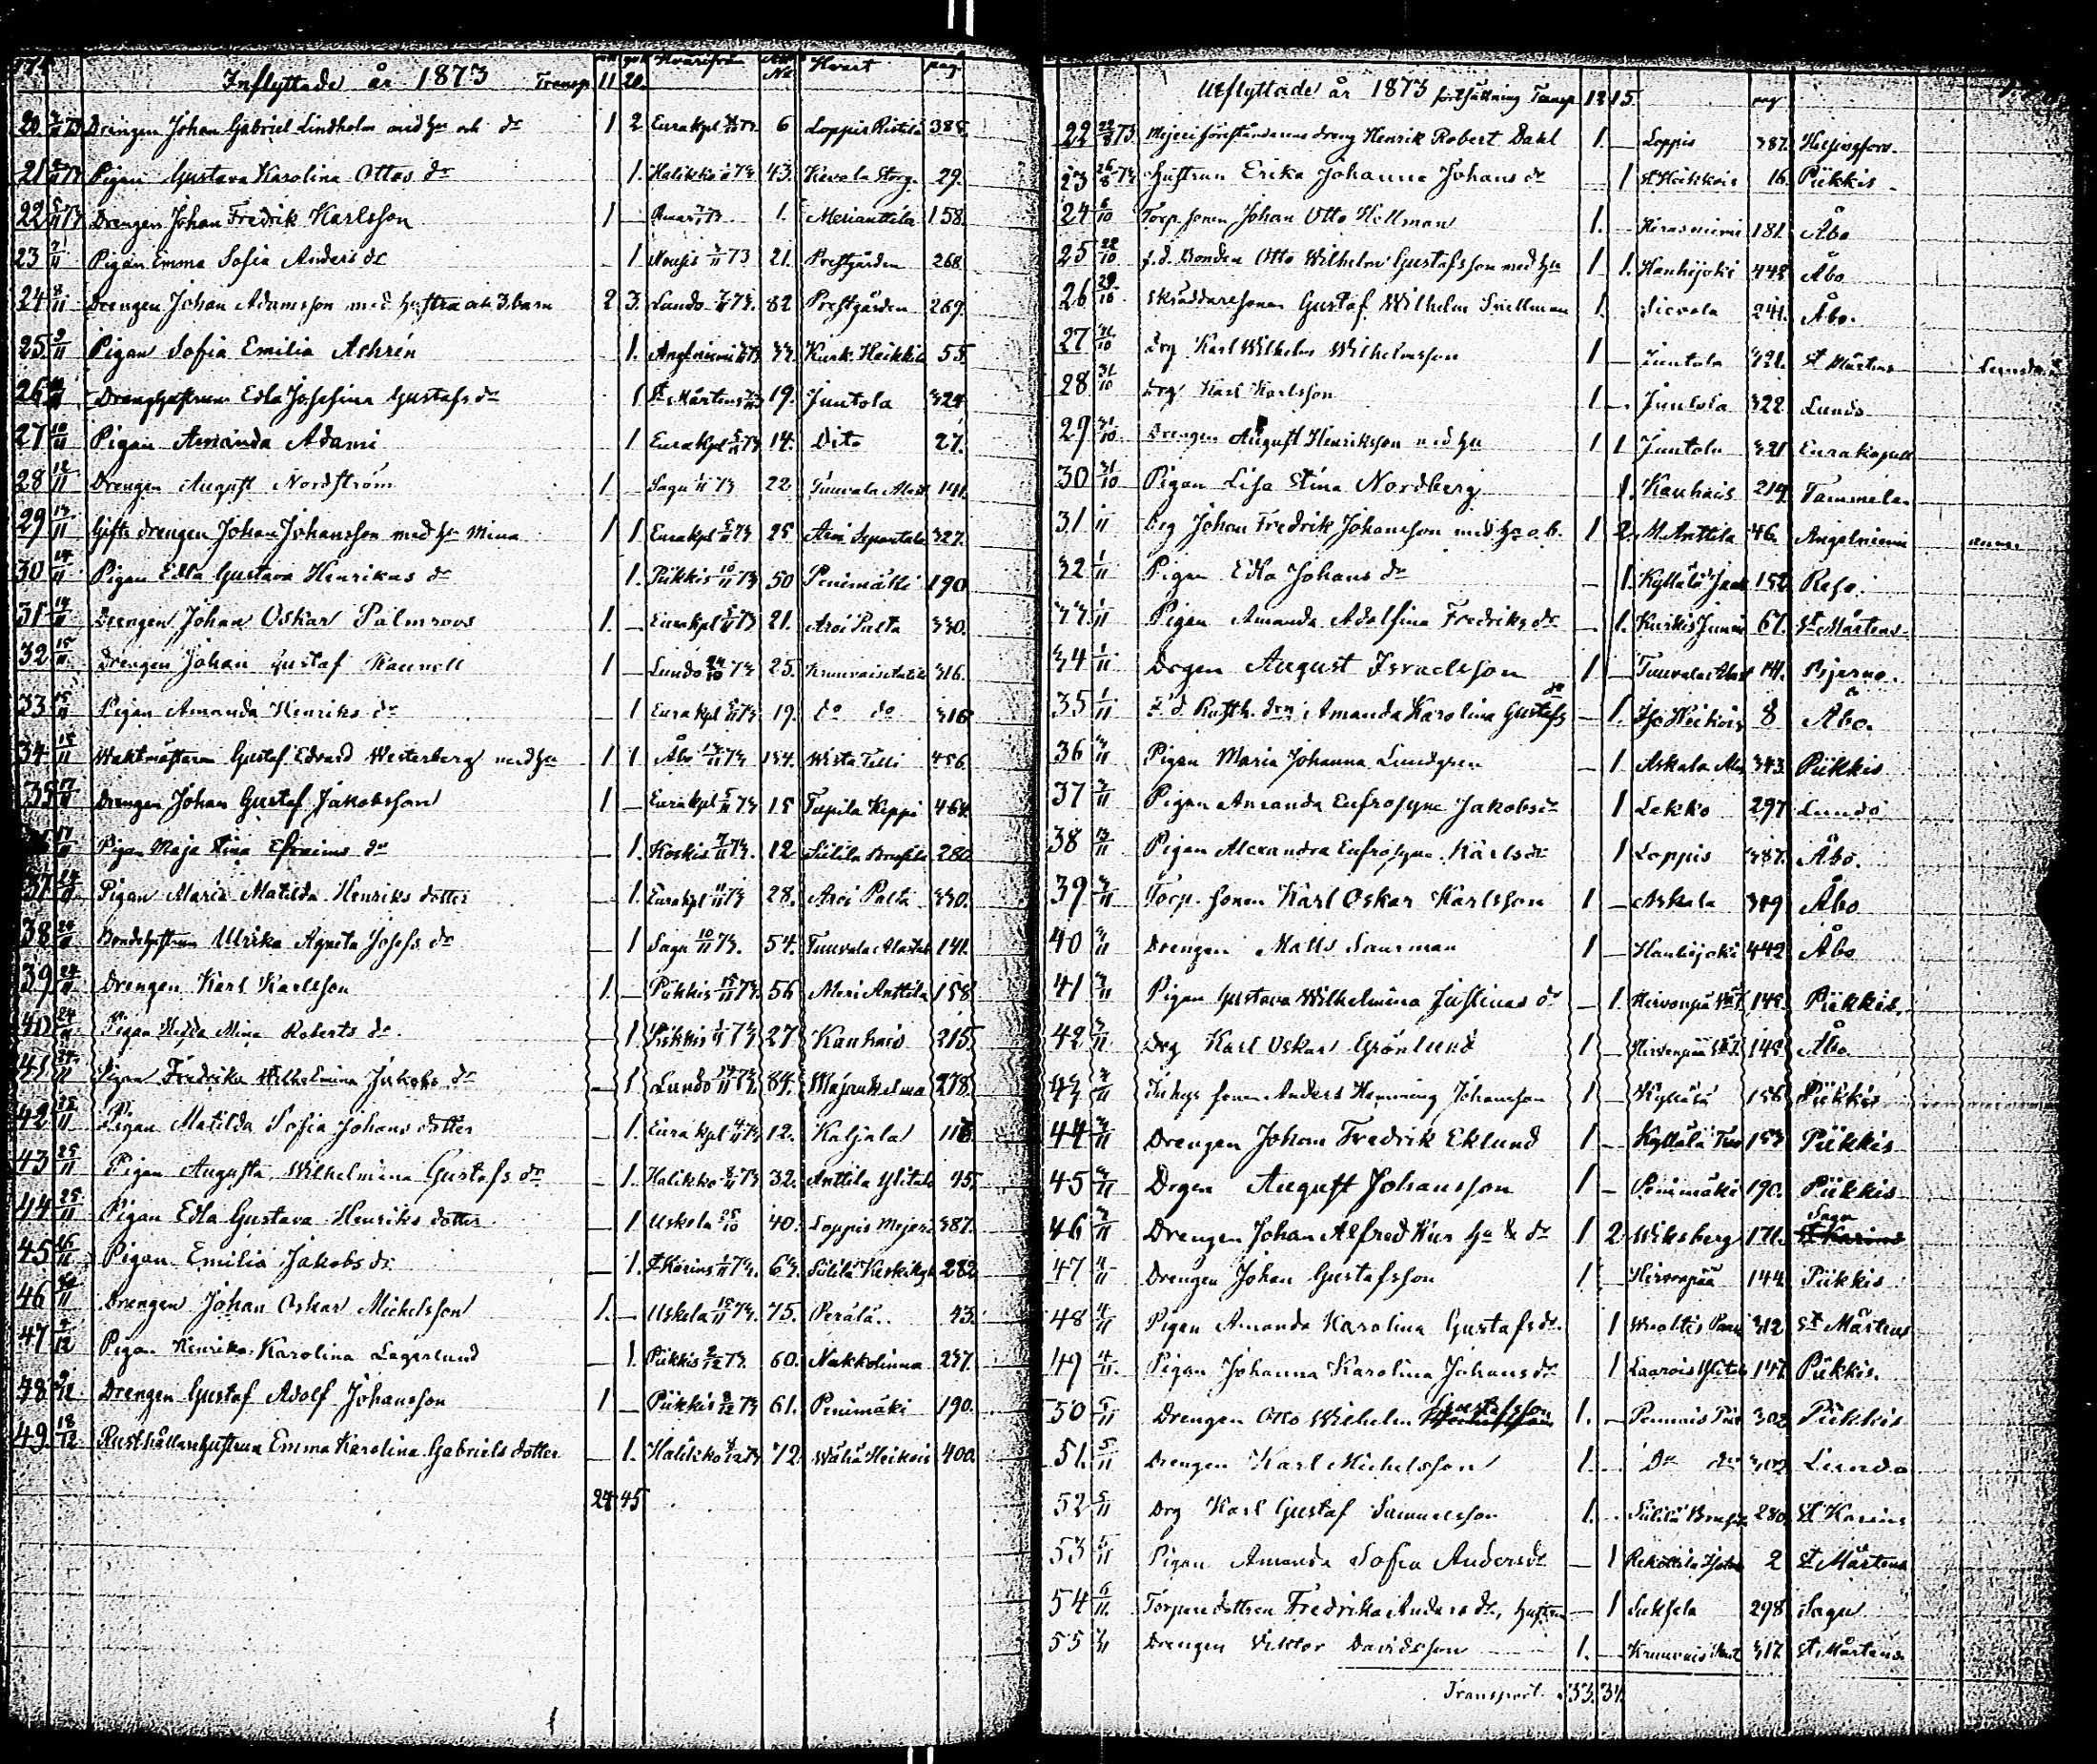 Inflyttade år 1873 Transp. 11 20. Hvarifrån Hvart pag.
20 Drengen Johan Gabriel Lindholm med hu och dr 1 2 Eurakpl 6 Loppis Ristilä 385.
21 Pigan Gustava Karolina Ottos dr 1. Halikko 43. Kevola Storg. 29.
22 5/11 73 Drengen Johan Fredrik Karlsson 1 — 1. Merianttila 158.
23 Pigan Emma Sofia Anders dr 1 Nousis 7/11 73 21. Prestgården 268
24 8/11 Drengen Johan Adamsson med hustru och 3 barn 2 3. Lundo 73. 82 Prestgården 269.
25. 9/11 Pigan Sofia Emilia Achrén 1. Angelniemi Kurk. Heikkil 55.
26 Dreng hustrun Edla Josefina Gustafs dr 1 St Mårtens 19. Juntola 324
27 10/11 Pigan Amanda Adami 1 Eurakpl 5/11 73 14. Dito 27.
28 12/11 Drengen August Nordström 1 — Sagu 73 22 Tuuvala Alast 141.
29 13/11 Gifte drengen Johan Johansson med hu Mina 1 1 Eurakpl 5/11 73 25 Arvi Seppäntalo 327.
30 14/11 Pigan Edla Gustava Henrikus dr 1. Pikkis 10/11 73 50 Penimäki 190
31 14/11 Drengen Johan Oskar Palmroos 1. — Eurakpl 73 21. Arvi Palta 330.
32 15/11 Drengen Johan Gustaf Haunell 1 — Lundo 24/10 73 25. 316.
33 15/11 Pigan Amanda Henriks dr — 1 Eurakpl 73 19. do do 316
34 15/11 Waktmästaren Gustaf Edvard Westerberg med hu 1 1 Åbo 73 154. Wista Tilli 456.
35 17/11 Drengen Johan Gustaf Jakobsson 1 — Eurakpl 5/11 73 15 Tapila Keppi 464.
17/11 Pigan Maja Stina Efraims dr — 1. Koskis 7/11 73. 12 280
37 Pigan Maria Matilda Henriks dotter — 1. Eurakpl 73 28. Arvi Palta 330.
38 Bondehustrun Ulrika Agneta Josefs dr — 1 Sagu 10/11 73. 54. Tuuvala Alastal 141.
39 24/11 Drengen Karl Karlsson 1. — Pikkis 15/11 73. 56 Meri Anttila 158
40 24/11 Pigan Hedda Mina Roberts dr. — 1. Pikkis 73 27 Kauhais 215.
41 24/11 Pigan Fredrika Wilhelmina Jakobs dr — 1 Lundo 73. 84. Majankulma 278.
42 25/11 Pigan Matilda Sofia Johans dotter — 1. Eurakpl 4/11 73 12. Kaljala
43 25/11 Pigan Augusta Wilhelmina Gustafs dr — 1. Halikko 8/11 73 32. Anttila Ylital 45.
44 25/11 Pigan Edla Gustava Henriks dotter — 1 Uskela 25/10 40. Loppis Mejeri 387.
45. Pigan Emilia Jakobs dr — 1. St Karins 73. 63. 282
46 Drengen Johan Oskar Michelsson 1. — Uskela 15/11 73. 75. Perälä 43.
47 2/12 Pigan Henrika Karolina Lagerlund — 1. Pikkis 2/12 73. 60. Nakkolinna 237.
48 9/12 Drengen Gustaf Adolf Johansson 1 — Pikkis 9/12 73 61. Penimäki 190.
49. 18/12 Rusthållarehustrun Emma Karolina Gabriels dotter — 1. Halikko 73 72. Wähä Heikois 400.
24 45
Utflyttade år 1873 fortsättning Transp. 13 15. pag
22 22/8 73 Mejeriföreståndarens dreng Henrik Robert Dahl 1. — Loppis 387. Helsingfors.
23 26/8 73 Hustrun Erika Johanna Johans dr — 1 16. Pikkis
24 6/10 Torp. sonen Johan Otto Hellman 1. — Hirasniemi 182 Åbo
25 22/10 f.d. Bonden Otto Wilhelm Gustafsson med hu 1 1. Hanhijoki 448 Åbo
26 29/10 Skräddaresonen Gustaf Wilhelm Snellman 1. Sievola 241. Åbo.
27 31/10 Drg Karl Wilhelm Wilhelmsson 1 — Juntola 321. St Mårtens
28 31/10 Drg Karl Karlsson 1 — Juntola 322 Lundo
29 31/10 Drengen August Henriksson med hu 1 1 Juntola 321 Eurakapell
30 31/10 Pigan Lisa Stina Nordberg 1. Kauhais 214 Tammela
31 Drg Johan Fredrik Johansson med hu o. b. 1 2. M. Anttila 46. Angelniemi
32 1/11 Pigan Edla Johans dr — 1. 152 Reso.
33 1/11 Pigan Amanda Adolfina Fredriks dr — 1. 67. St Mårtens
34 1/11 Drgen August Israelsson 1 — Tuuvala Alast 141. Bjerno.
35 1/11 Amanda Karolina Gustafs dr — 1. Iso Heikois 8 Åbo.
36 3/11 Pigan Maria Johanna Lundgren — 1 Askala 343. Pikkis
37 3/11 Pigan Amanda Eufrosyne Jakobs dr 1 Lekko 297 Lundo
38 13/11 Pigan Alexandra Eufrosyne Karls dr 1 Loppis 387. Åbo.
39 3/11 Torp. sonen Karl Oskar Karlsson 1 — Askala 349 Åbo
40 3/11 Drengen Matts Saurman 1 — Hanhijoki 442 Åbo
41 3/11 Pigan Gustava Wilhelmina Justinas dr — 1. Hirvonpää 145. Pikkis.
42 3/11 Drg Karl Oskar Grönlund 1 — Hirvonpää 145 Åbo
43 3/11 Inhys sonen Anders Henning Johansson 1 — Kyllälä 156 Pikkis
44 3/11 Drengen Johan Fredrik Eklund 1 — Kyllälä 153 Pikkis
45 3/11 Drgen August Johansson 1 — Penimäki 190. Pikkis
46 3/11 Drengen Johan Alfred Kus hu & dr 1 2 Wiksberg 171. Sagu St Karins
47 4/11 Drengen Johan Gustafsson 1 — Hirvonpää 144 Pikkis
48 4/11 Pigan Amanda Karolina Gustafs dr. 1 312 St Mårtens
49 4/11 Pigan Johanna Karolina Johans dr 1 Laarois Ylital 147. Pikkis.
50 5/11 Drengen Otto Wilhelm Gustafsson 1. — Pennais 302 Pikkis
51. 5/11 Drengen Karl Michelsson 1. Do do 302 Lundo
52 5/11 Drg Karl Gustaf Samuelsson 1. 280. St Karins
53 5/11 Pigan Amanda Sofia Anders dr — 1 Rekottila 2 St Mårtens
54 6/11 Torparedottren Fredrika Anders dr, hustru — 1 Suksela 298 Sagu
55 Drengen Viktor Davidsson 1. — 317. St Mårtens
Transport 33. 34.